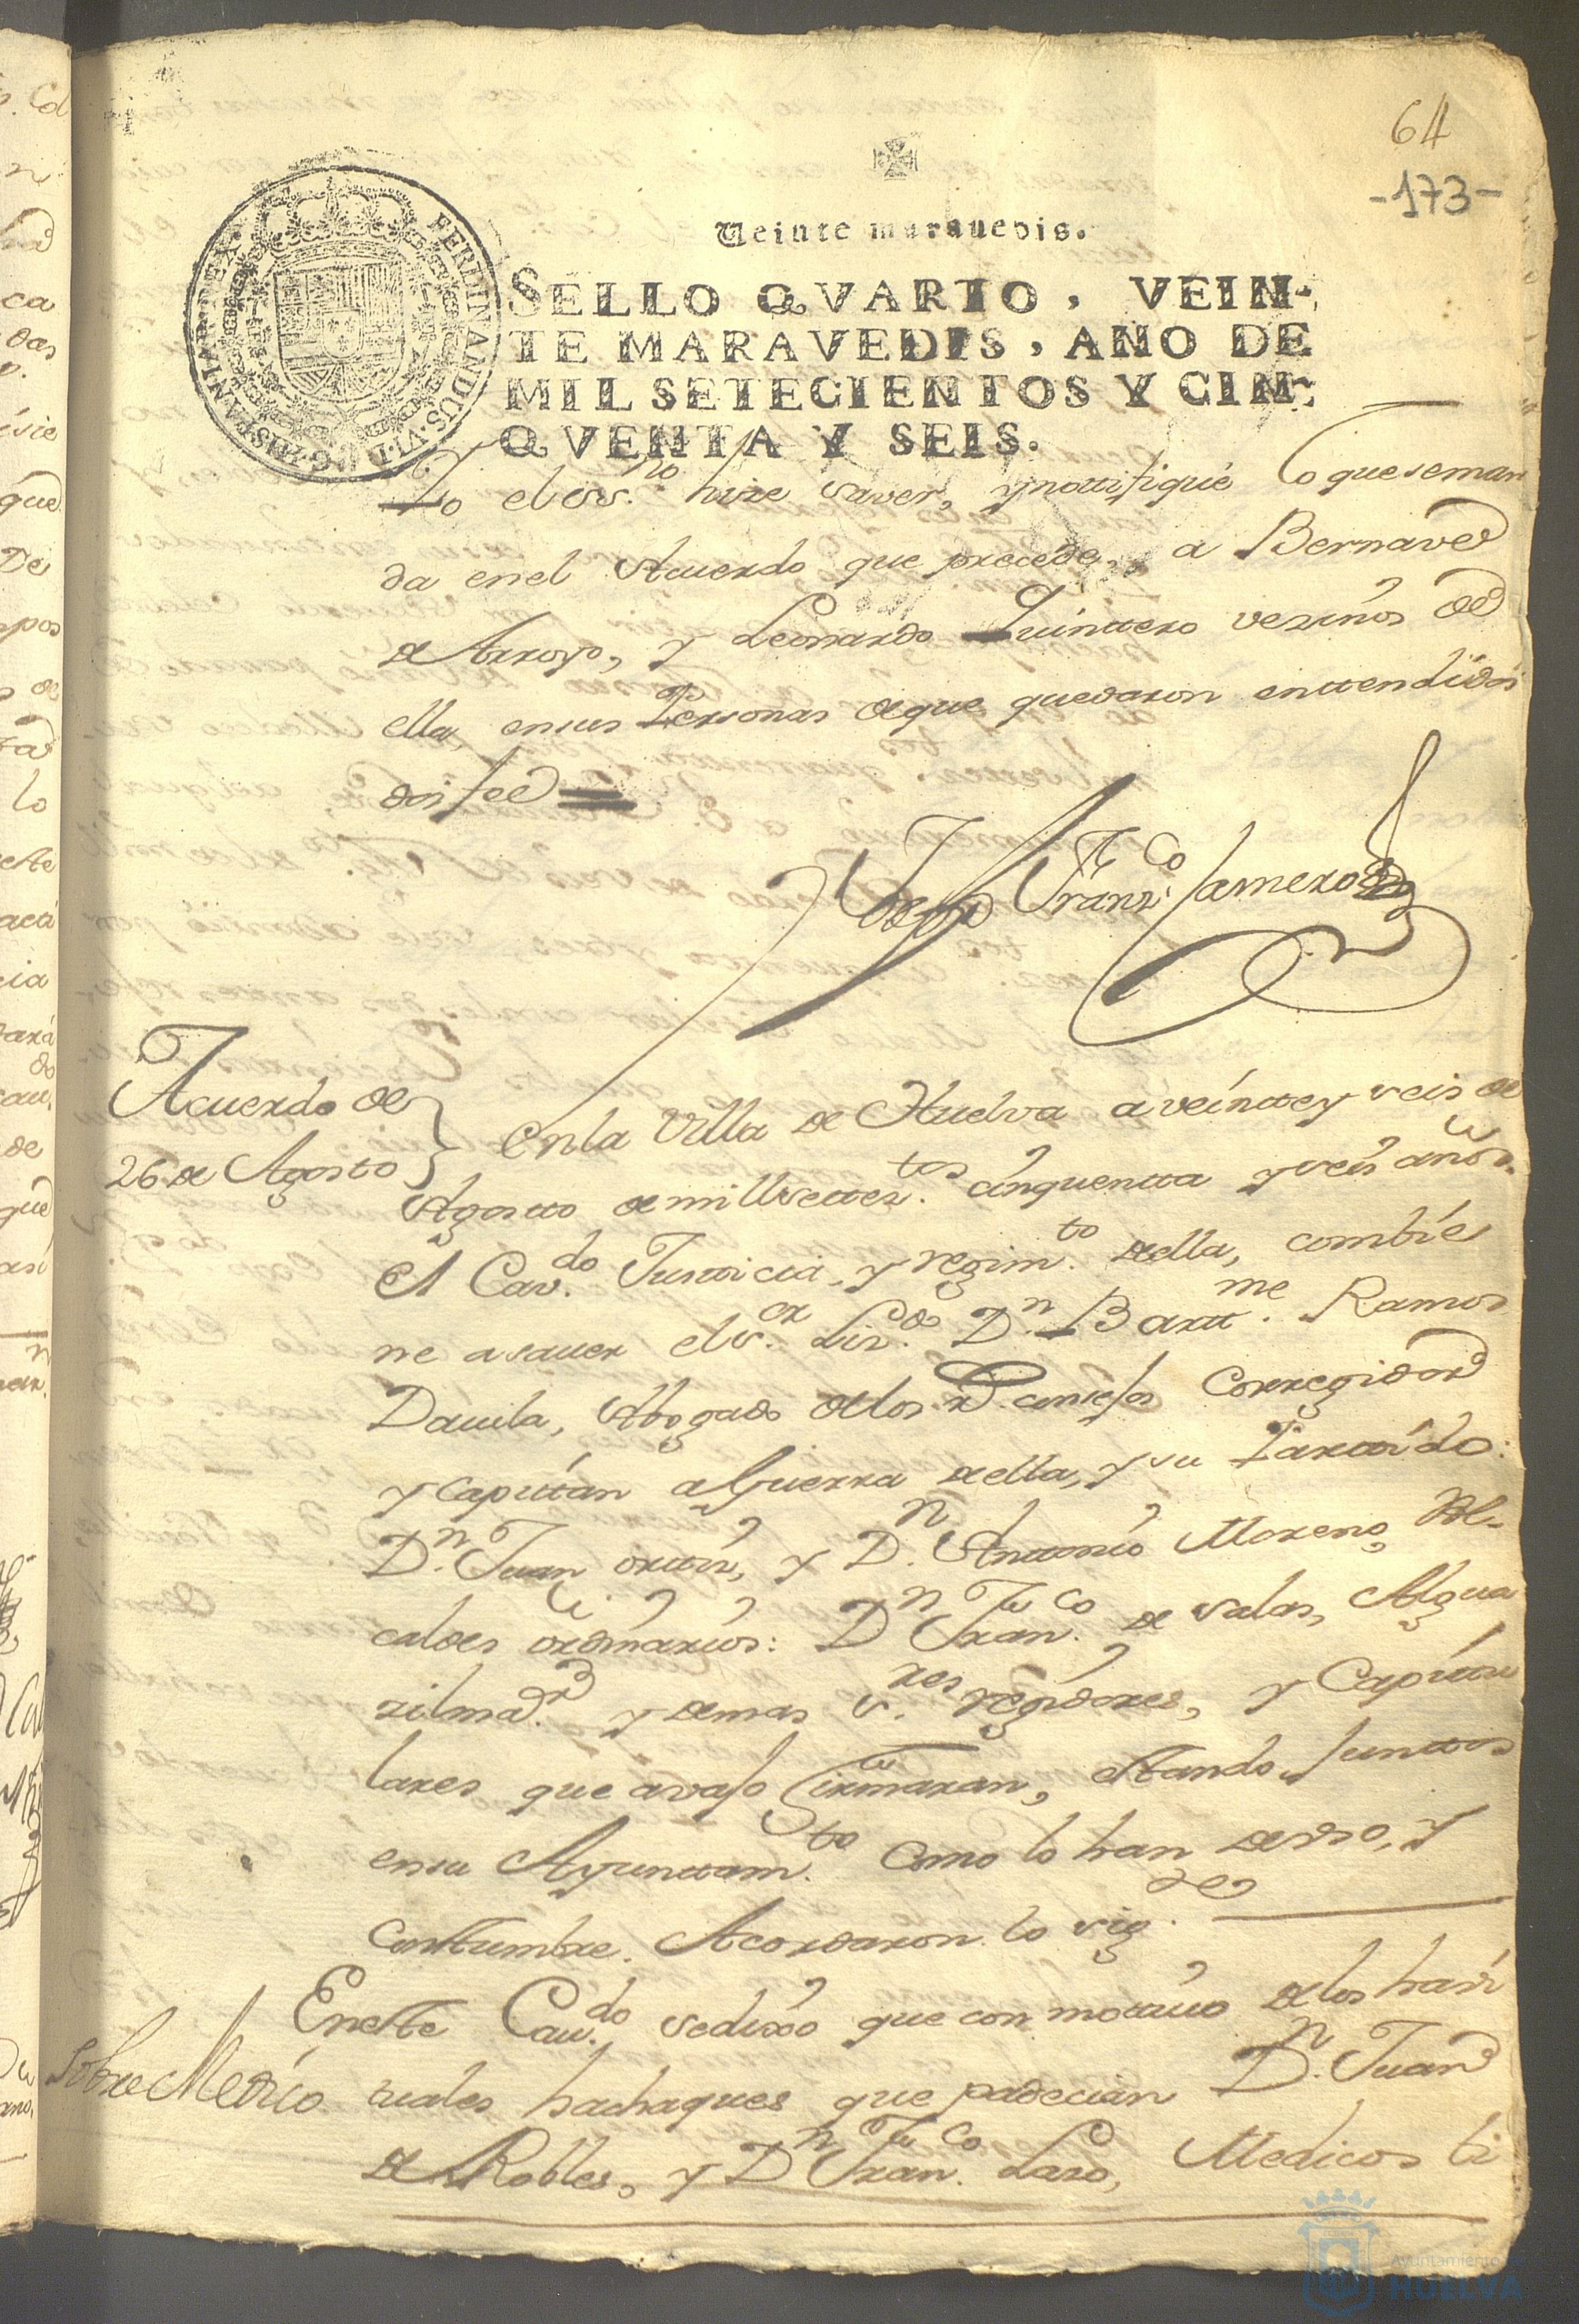 64
-173-
Veinte maravedis.
SELLO QVARTO, VEIN-
TE MARAVEDIS, AÑO DE
MIL SETECIENTOS Y CIN-
QVENTA Y SEIS.
FERDINANDUS.VI.D.G.HISPANIAR.REX.
Yo el ess.no hize saver, y nottifiqué lo que se man
da en el Acuerdo que precede, a Bernave
de Arroyo, y Leonardo Quinttero vezinos de
ella, en sus Personas de que quedaron enttendidos
doy fee
Fran.co Jamero
Acuerdo de
26 de Agosto
En la Villa de Huelva a veintte y seis de
Agosto de mill settez.tos cinquentta y seis años
El Cav.do Justticia, y regim.to de ella, combie
ne a saver el s.or Liz.do D.n Bartt.me Ramos
Davila, Abogado de los R.s consejos Corregidor
y Capitán a Guerra de ella, y su Parttido:
D.n Juan orttiz, y D.n Anttonio Moreno Al-
caldes ordinarios: D.n Fran.co de Salas, Algua
zil ma.r y demas s.res regidores, y Capitu
lares que avajo firmaran, estando Junttos
en su Ayunttam.to Como lo han de uso, y
Costtumbre. Acordaron lo sig.te
En este Cav.do se dixo que con motivo de los havi
Sobre Medico
tuales hachaques que padecian D.n Juan
de Robles, y D.n Fran.co Lazo, Medicos ti
Ayuntamiento de
HUELVA